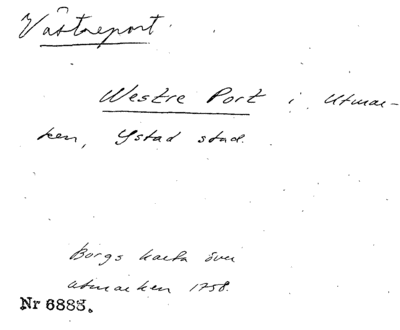 Västreport.
Westre Port i Utmar-
ken, Ystad stad.
Borgs karta över
utmarken 1758.
Nr 6883.